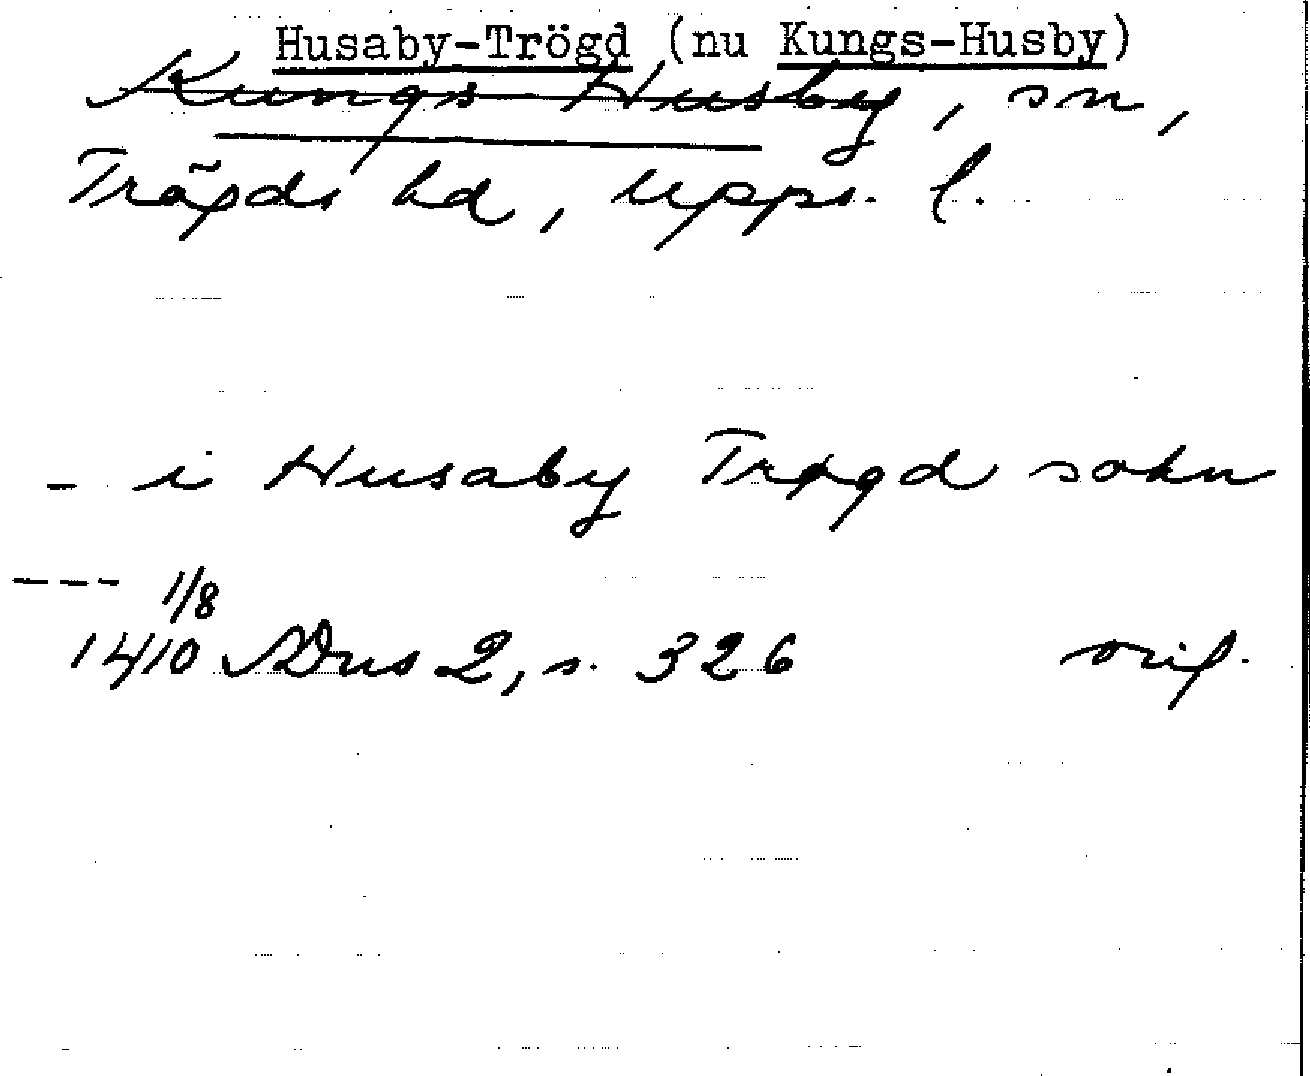 Husaby-Trögd (nu Kungs-Husby)
Kungs Husby, sn,
Trögds hd, Upps. l.
- i Husaby Trøgd sokn
--- 1/8
1410 SDns 2, s. 326 orig.